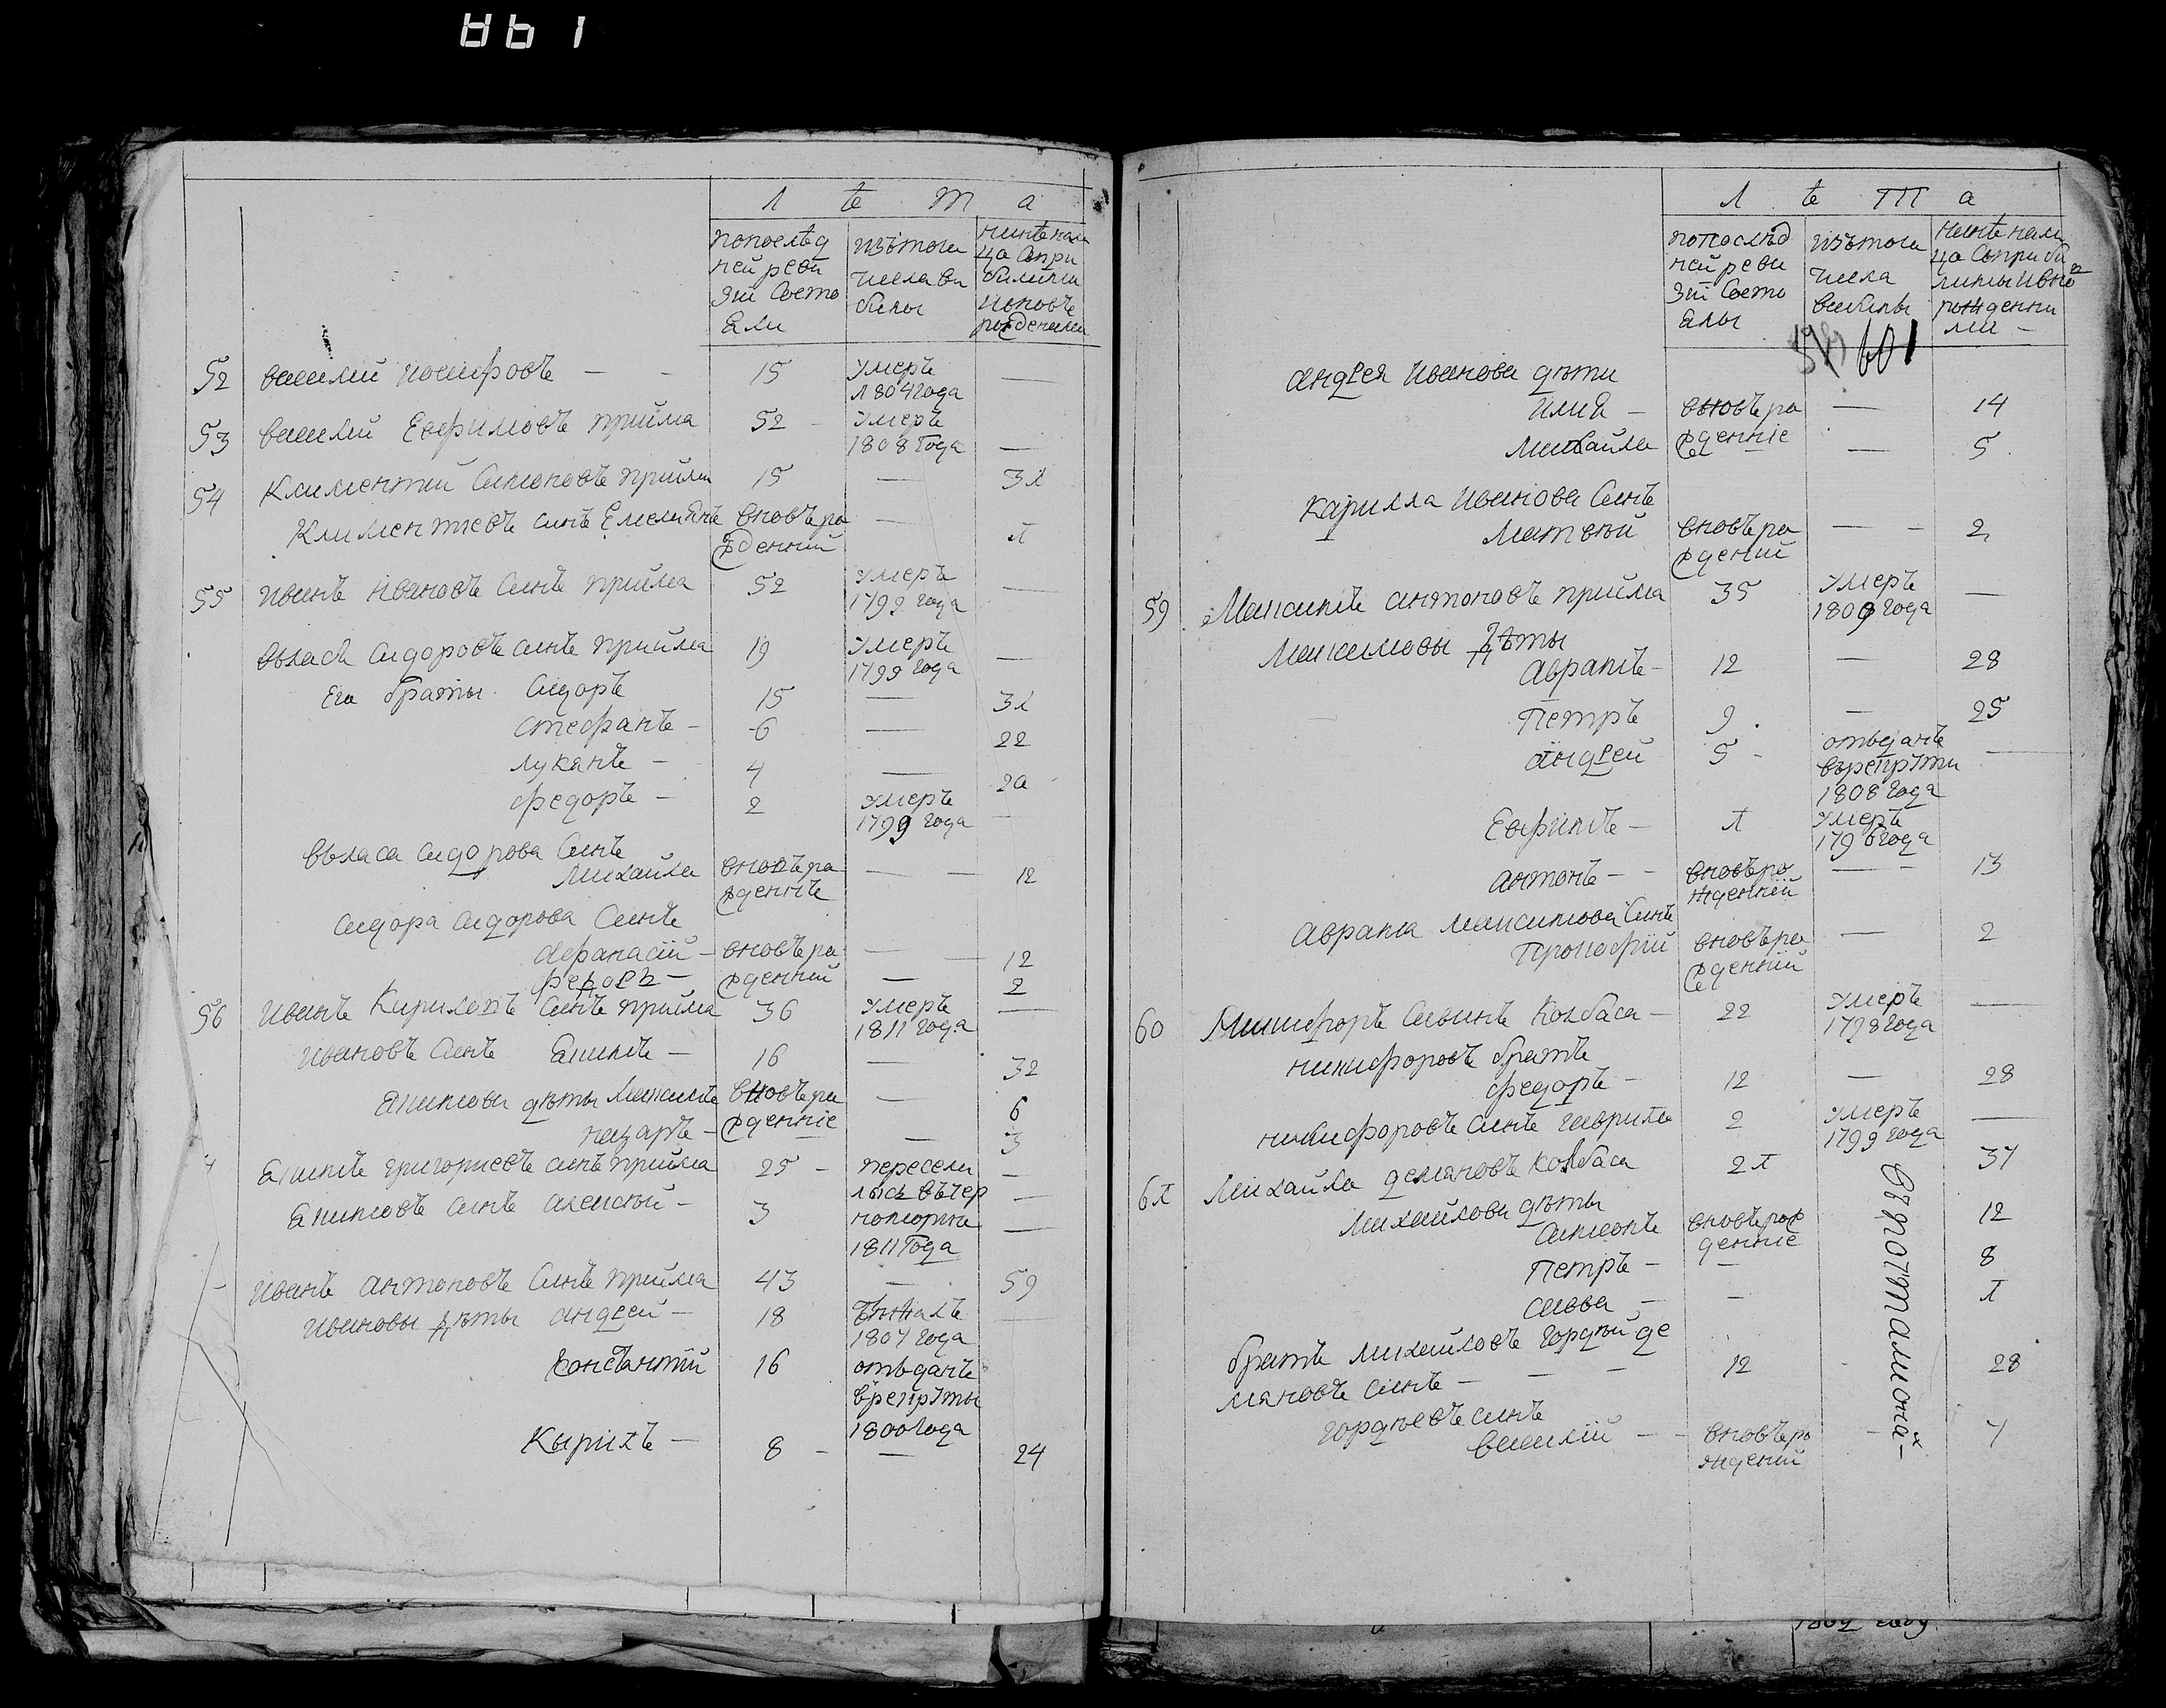 1961
л ѣ т а
попослѣд
ней реви
зіи Состо
яли
изътого
числа ви
билы
нинѣ нали
цо Сопри
билими
иновъ
рожденими
52 василий иосифовъ — — 15 умеръ 1804 года —
53 василий Евфимовъ прийма 52 умеръ 1808 года —
54 Климентий Симоновъ прийма 15 — 31
Климентиевъ синъ Емелиянъ вновъ ро
жденний — 1
55 иванъ ивановъ Синъ прийма 52 умеръ 1799 года —
въласъ сидоровъ синъ прийма 19 умеръ 1799 года —
Его браты Сидоръ 15 — 31
стефанъ — 6 — 22
лукянъ — 4 — 20
федоръ — 2 умеръ 1799 года —
въласа сидорова Синъ
михайла вновъ ро
жденнъ — — 12
сидора сидорова Синъ
Афанасій — вновъ ро — 12
федоръ — жденний — 2
56 иванъ Кириловъ Синъ прийма 36 умеръ 1811 года —
ивановъ Синъ Якимъ — 16 — 32
якимови дѣты максимъ вновъ ро — 6
назаръ — жденніе — 3
Якимъ григориевъ синъ прийма 25 — пересели —
Якимовъ синъ алексѣй — 3 лысь въчер —
номорию —
1811 Года
иванъ антоновъ Синъ прийма 43 — 59
ивановы дѣты андрей — 18 бѣжалъ 1807 года —
константій 16 отъданъ
врекруты
1800 года
Кырилъ — 8 — — 24
л ѣ т а
попослѣд
ней реви
зіи Состо
ялы
изътого
числа
вибилы
нинѣ нали
цо Сприбы
лимы ивно
рожденни
ми —
601
андрея иванова дѣти
илия — вновъ ро — 14
михайла жденніе — 5
кирилла иванова Синъ
матвѣй вновъ ро
жденній — — 2
59 Максимъ антоновъ прийма 35 умеръ 1809 года —
Максимовы дѣты
Аврамъ — 12 — 28
Петръ 9 — 25
андрей 5 — отъданъ
върекруты
1808 года —
Евфимъ — 1 умеръ 1796 года
антонъ — — вновъ ро
жденній — — 13
аврама максимова Синъ
Прокофій вновъ ро
жденній — 2
60 Никифоръ Савинъ Колбаса — 22 умеръ 1798 года —
никифоровъ братъ
федоръ — 12 — 28
никифоровъ Синъ гаврила 2 умеръ 1799 года —
61 михайла демяновъ Колбаса 21 37
михайлови дѣты
Симеонъ вновъ рож
денніе 12
Петръ — — 8
савва — — 1
братъ михайловъ гордѣй де
мяновъ синъ — — — 12 28
гордѣевъ синъ
василій — — вновъ ро
жденій — 7